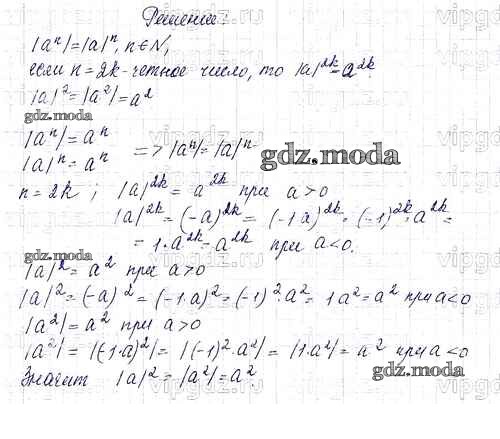 Решение:
|aⁿ|=|a|ⁿ, n∈N,
если n=2k-четное число, то |a|²ᵏ=a²ᵏ
|a|²=|a²|=a²
gdz.moda
|aⁿ|=aⁿ
|a|ⁿ=aⁿ => |aⁿ|=|a|ⁿ
gdz.moda
n=2k; |a|²ᵏ=a²ᵏ при a>0
|a|²ᵏ=(-a)²ᵏ=(-1·a)²ᵏ=(-1)²ᵏ·a²ᵏ=
=1·a²ᵏ=a²ᵏ при a<0.
gdz.moda
|a|²=a² при a>0
|a|²=(-a)²=(-1·a)²=(-1)²·a²=1a²=a² при a<0
|a²|=a² при a>0
|a²|=|(-1·a)²|=|(-1)²·a²|=|1·a²|=a² при a<0
gdz.moda
Значит |a|²=|a²|=a²